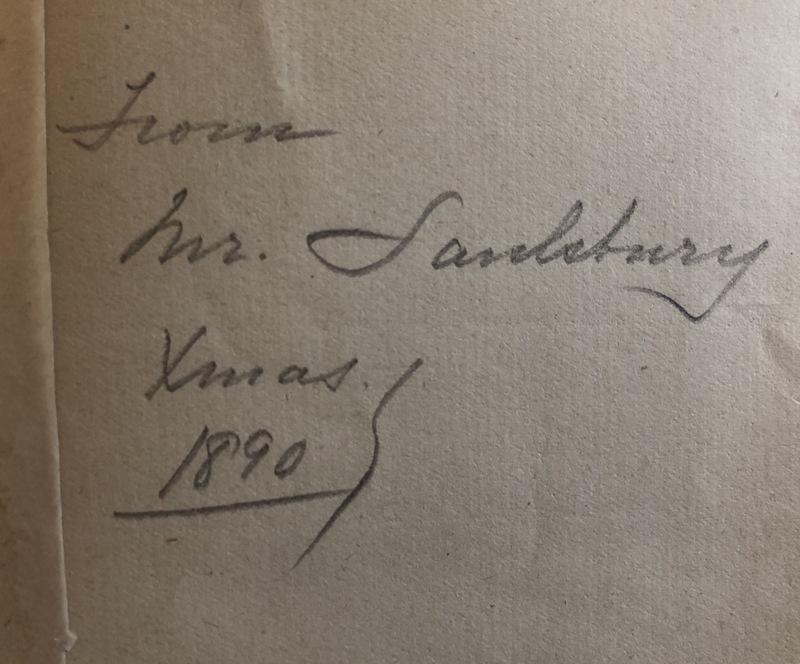 From
Mr. Saulsbury
Xmas.
1890